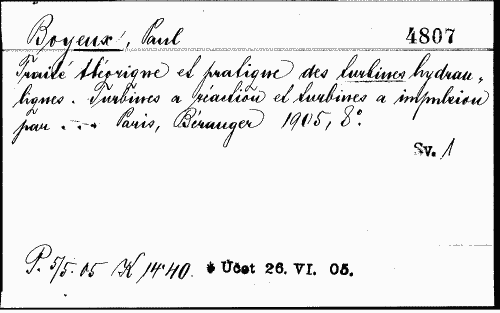 Boyeux, Paul 4807
Traité théorique et pratique des turbines hydrau-
liques. Turbines a réaction et turbines a impulsion
par ... Paris, Béranger 1905, 8°.
Sv. 1
P. 5/5.05 K 14·40. * Účet 26. VI. 05.